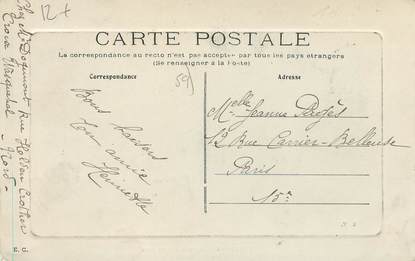 12 +
CARTE POSTALE
La correspondance au recto n'est pas acceptée par tous les pays étrangers
(Se renseigner à la Poste)
Correspondance
Adresse
59)
Bons baisers
Ton amie
Henriette
Melle Jeanne
12 Rue Carrier-Belleuse
Paris
15e
Chez Mr Rue Holden Crother
Croix Wasquehal
Nord
E. C.